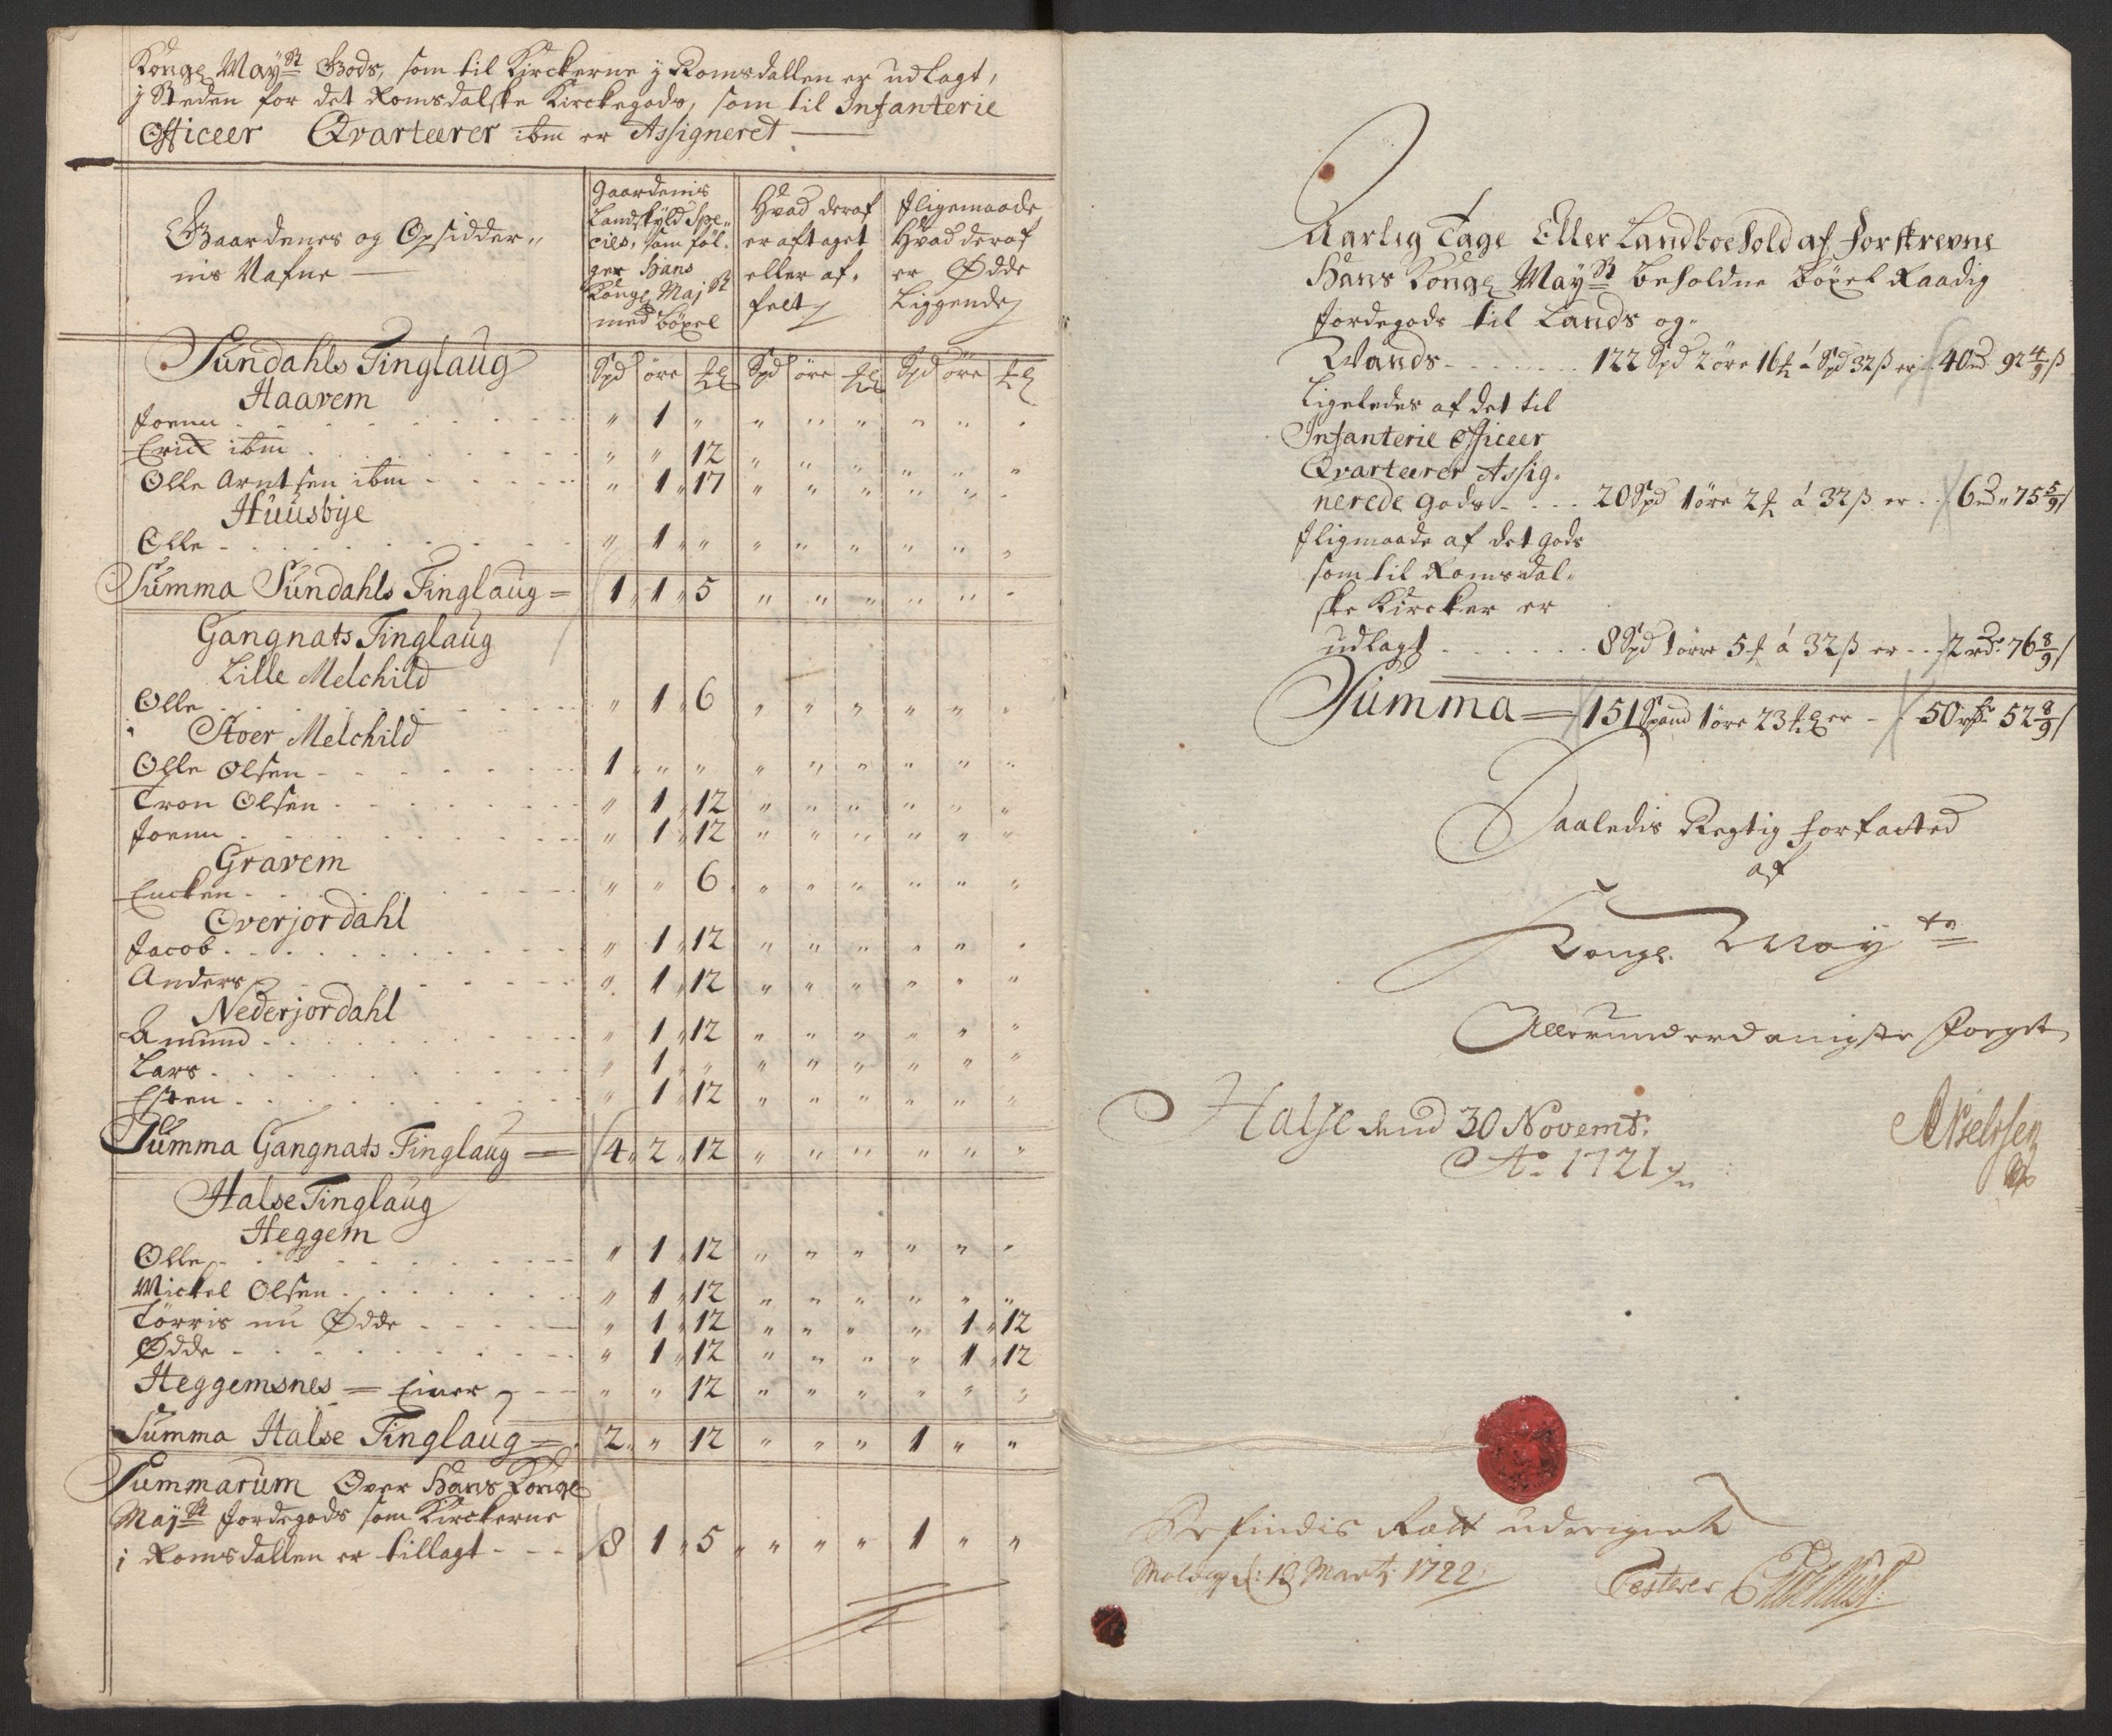 Kongl May.st Gods, som til Kirckerne j Romsdallen er udlagt,
j Steden for det Romsdalske Kirckegods, som til Infanterie
Officeer Qvarteerer ibm er Assigneret
Gaardenes og Opsidder„
nis Nafne
Gaardenis
Landskyld Spe„
cies, som føl„
ger Hans
Kongl Maj.st
med böxel
Hvad deraf
er aftaget
eller af„
felt
Jligemaade
Hvad deraf
er Ødde
Liggende
Sundahls Tinglaug Spd öre Spd öre Spd öre
Haavem
Joenn „ 1 „ „ „ „ „ „ „
Erick ibm „ „ 12 „ „ „ „ „ „
Olle Arntsen ibm „ 1 17 „ „ „ „ „ „
Huusbye
Olle „ 1 „ „ „ „ „ „ „
Summa Sundahls Tinglaug = 1 1 5 „ „ „ „ „ „
Gangnats Tinglaug
Lille Melchild
Olle „ 1 6 „ „ „ „ „ „
Stoer Melchild
Olle Olsen 1 „ „ „ „ „ „ „ „
Tron Olsen „ 1 12 „ „ „ „ „ „
Joenn „ 1 12 „ „ „ „ „ „
Gravem
Encken „ „ 6 „ „ „ „ „ „
Overjordahl
Jacob „ 1 12 „ „ „ „ „ „
Anders „ 1 12 „ „ „ „ „ „
Nederjordahl
Amund „ 1 12 „ „ „ „ „ „
Lars „ 1 „ „ „ „ „ „ „
Esten „ 1 12 „ „ „ „ „ „
Summa Gangnats Tinglaug = 4 2 12 „ „ „ „ „ „
Halse Tinglaug
Heggem
Olle „ 1 12 „ „ „ „ „ „
Mickel Olsen „ 1 12 „ „ „ „ „ „
Törris nu Ødde „ 1 12 „ „ „ „ 1 12
Ødde „ 1 12 „ „ „ „ 1 12
Heggemsnes = Einer „ „ 12 „ „ „ „ „ „
Summa Halse Tinglaug = 2 „ 12 „ „ „ 1 „ „
Summarum Over Hans Kongl
May.st Jordegods som Kirckerne
i Romsdallen er tillagt 8 1 5 „ „ „ 1 „ „
Aarlig Tage Eller Landboehold af forskrevne
Hans Kongl May.st beholdne böxel Raadig
Jordegods til Lands og
Wands 122 Spd 2 öre 16 á Spd 32 ß er 40 92 4/9 ß
Ligeledes af det til
Infanterie Officeer
Qvarteerer Assig„
nerede gods 20 Spd 1 öre 2 á 32 ß er 6 75 5/9 ß
Jligmaade af det gods
som til Romsdal„
ske Kircker er
udlagt 8 Spd 1 öre 5 á 32 ß er 2 rd. 76 8/9 ß
Summa = 151 Spand 1 öre 23 er 50 52 8/9 ß
Saaledis Regtig forfatted
af
Kongl. May.ts
Allerunderdanigste Foegit
Halse dend 30 Novemb:
Ao 1721
ANielssen
Befindis Rett udregnet
Molde d: 13 Marti 1722
Testerer